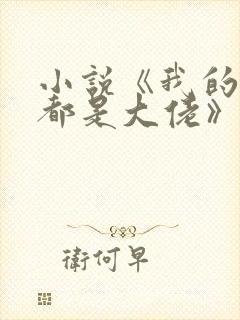 小說《我的
都是大佬》
衛何早